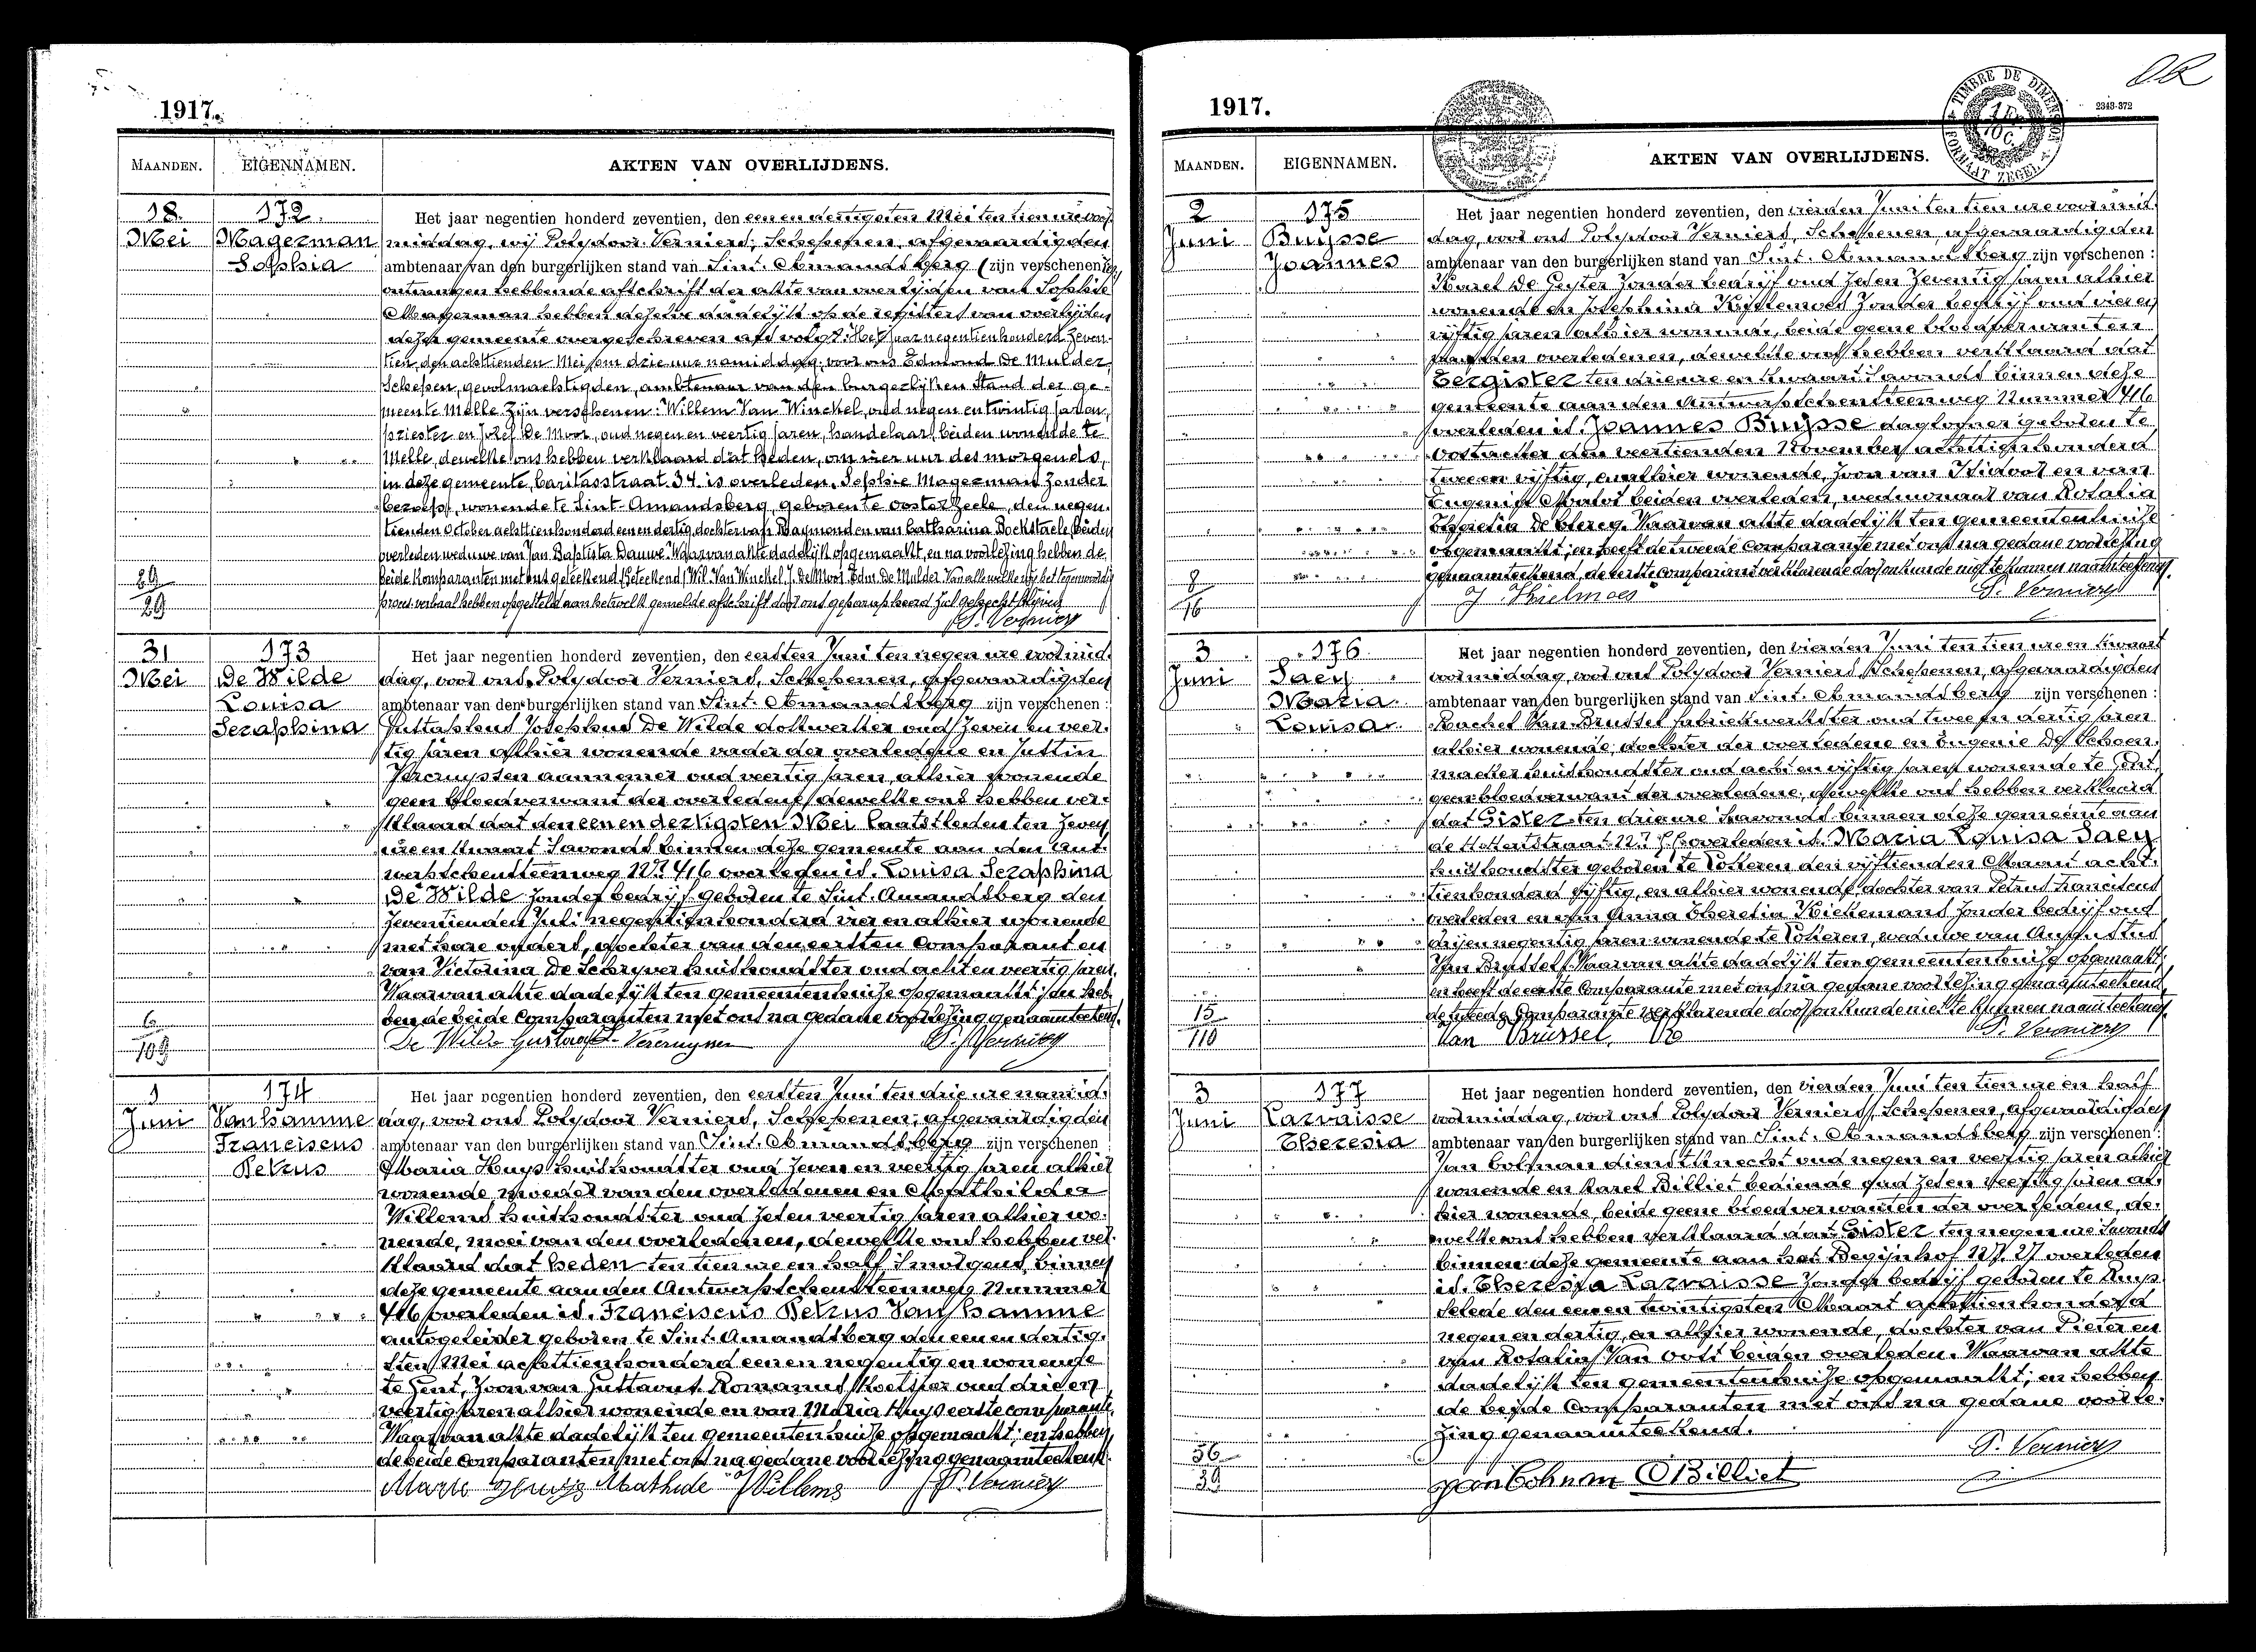 1917.
MAANDEN.
EIGENNAMEN.
AKTEN VAN OVERLIJDENS.
18
Mei
172
Magerman
Sophia
Het jaar negentien honderd zeventien, den een en dertigsten Mei ten tien ure voor
middag, wij Polydoor Verniers, Schepenen, afgevaardigden
ambtenaar van den burgerlijken stand van Sint. Amandsberg (zijn verschenen)
ontvangen hebbende afschrift der akte van overlijden van Sophie
Magerman hebben dezelve dadelijk op de registers van overlijden
dezer gemeente overgeschreven als volgt: Het jaar negentien honderd zeven-
tien, den achttienden Mei, om drie uur namiddag, voor ons Edmond De Mulder,
Schepen, gevolmachtigden, ambtenaar van den burgerlijken Stand der ge-
meente Melle zijn verschenen: Willem Van Winckel, oud negen en twintig jaren,
priester en Jozef De Moor, oud negen en veertig jaren, handelaar, beiden wonende te
Melle, dewelke ons hebben verklaard dat heden, om vier uur des morgends,
in deze gemeente, Caritasstraat 34 is overleden, Sophie Magerman zonder
beroep, wonende te Sint-Amandsberg, geboren te Oosterzeele, den negen-
tienden October achttienhonderd een en dertig, dochter van Raymond en van Catharina Bockstaele, beiden
overleden weduwe van Jan Baptista Dauwe. Waarvan akte dadelijk opgemaakt, en na voorlezing hebben de
beide komparanten met ons geteekend (Geteekend) Wil. Van Winckel, J. De Moor, Edm. De Mulder. Van alle welke wij het tegenwoordig
proces verbaal hebben opgesteld aan hetwelk gemelde afschrift door ons geparapheerd zal gehecht blijven
P. Verniers
29
29
31
Mei
173
De Wilde
Louisa
Seraphina
Het jaar negentien honderd zeventien, den eersten Juni ten negen ure voormid-
dag, voor ons Polydoor Verniers, Schepenen, afgevaardigden
ambtenaar van den burgerlijken stand van Sint. Amandsberg zijn verschenen:
Gustaphus Josephus De Wilde dokwerker oud zeven en veer-
tig jaren alhier wonende vader der overledene en Justin
Vercruyssen aannemer oud veertig jaren alhier wonende
geen bloedverwant der overledene, dewelke ons hebben ver-
klaard dat den een en dertigsten Mei laatstleden ten zeven
ure en kwart s'avonds binnen deze gemeente aan den Ant-
werpschensteenweg Nr 416 overleden is. Louisa Seraphina
De Wilde zonder bedrijf geboren te Sint. Amandsberg den
zeventienden Juli negentienhonderd vier en alhier wonende
met hare ouders, dochter van den eersten Comparant en
van Victorina De Schryver huishoudster oud acht en veertig jaren.
Waarvan akte dadelijk ten gemeentenhuize opgemaakt; en heb-
ben de beide Comparanten met ons na gedane voorlezing genaamteekend.
De Wilde Gustaaf Vercruyssen P. Verniers
6
109
1
Juni
174
Van hamme
Franciscus
Petrus
Het jaar negentien honderd zeventien, den eersten Juni ten drie ure namid-
dag, voor ons Polydoor Verniers, Schepenen, afgevaardigden
ambtenaar van den burgerlijken stand van Sint. Amandsberg zijn verschenen
Maria Huys huishoudster oud zeven en veertig jaren alhier
wonende, moeder van den overledenen en Mathilde
Willems huishoudster oud zes en veertig jaren alhier wo-
nende, moei van den overledenen, dewelke ons hebben ver-
klaard dat heden ten tien ure en half s'morgens binnen
deze gemeente aan den Antwerpschensteenweg Nummer
416 overleden is. Franciscus Petrus Van hamme
autogeleider geboren te Sint. Amandsberg den een en dertig-
sten Mei achttienhonderd een en negentig en wonende
te Gent, zoon van Gustavus Romanus oud drie en
veertig jaren alhier wonende en van Maria Huys eerste comparante.
Waarvan akte dadelijk ten gemeentenhuize opgemaakt; en hebben
de beide comparanten met ons na gedane voorlezing genaamteekend.
Marie Huys Mathilde Willems P. Verniers
1917.
2343-372
TIMBRE DE DIMENSION
FORMAAT ZEGEL
MAANDEN.
EIGENNAMEN.
AKTEN VAN OVERLIJDENS.
2
Juni
175
Buysse
Joannes
Het jaar negentien honderd zeventien, den vierden Juni ten tien ure voormid-
dag, voor ons Polydoor Verniers, Schepenen, afgevaardigden
ambtenaar van den burgerlijken stand van Sint. Amandsberg zijn verschenen:
Karel De zonder bedrijf oud zes en zeventig jaren alhier
wonende en Josephina zonder bedrijf oud vier en
vijftig jaren alhier wonende, beide geene bloedverwanten
van den overledenen, dewelke ons hebben verklaard dat
Eergister ten drie ure en kwart s'avonds binnen deze
gemeente aan den Antwerpschensteenweg Nummer 416
overleden is. Joannes Buysse daglooner geboren te
Oostacker den veertienden November achttienhonderd
twee en vijftig, en alhier wonende, zoon van Isidoor en van
Eugenie beiden overleden, weduwnaar van Rosalia
Theresia De Clercq. Waarvan akte dadelijk ten gemeentenhuize
opgemaakt; en heeft de tweede Comparante met ons na gedane voorlezing
genaamteekend, de eerste comparant verklarende door onkunde niet te kunnen naamteekenen.
P. Verniers
8
16
3
Juni
176
Saey
Maria
Louisa
Het jaar negentien honderd zeventien, den vierden Juni ten tien ure en kwart
voormiddag, voor ons Polydoor Verniers, Schepenen, afgevaardigden
ambtenaar van den burgerlijken stand van Sint. Amandsberg zijn verschenen:
Rachel Van Brussel fabriekwerkster oud twee en dertig jaren
alhier wonende, dochter der overledene en Eugenie De Schoen-
macker huishoudster oud acht en vijftig jaren wonende te Gent,
geen bloedverwant der overledene, dewelke ons hebben verklaard
dat Gister ten drie ure s'avonds binnen deze gemeente aan
de overleden is. Maria Louisa Saey
huishoudster geboren te Lokeren den vijftienden Maart acht-
tienhonderd vijftig, en alhier wonende, dochter van Petrus Franciscus
overleden en van Anna Theresia zonder bedrijf oud
drij en negentig jaren wonende te Lokeren, weduwe van Augustus
Van Brussel. Waarvan akte dadelijk ten gemeentenhuize opgemaakt;
en heeft de eerste Comparante met ons na gedane voorlezing genaamteekend,
de tweede Comparante verklarende door onkunde niet te kunnen naamteekenen.
Van Brussel P. Verniers
15
110
3
Juni
177
Larvaisse
Theresia
Het jaar negentien honderd zeventien, den vierden Juni ten tien ure en half
voormiddag, voor ons Polydoor Verniers, Schepenen, afgevaardigden
ambtenaar van den burgerlijken stand van Sint. Amandsberg zijn verschenen:
Jan Colman dienstknecht oud negen en veertig jaren alhier
wonende en Karel Billiet bediende oud zes en veertig jaren al-
hier wonende, beide geene bloedverwanten der overledene, de-
welke ons hebben verklaard dat Gister ten negen ure s'avonds
binnen deze gemeente aan het Begijnhof Nr 27 overleden
is. Theresia Larvaisse zonder bedrijf geboren te Ruys-
selede den een en twintigsten Maart achttienhonderd
negen en dertig, en alhier wonende, dochter van Pieter en
van Rosalia Van beiden overleden. Waarvan akte
dadelijk ten gemeentenhuize opgemaakt; en hebben
de beide Comparanten met ons na gedane voorle-
zing genaamteekend.
P. Verniers
Jan Colman Billiet
56
39